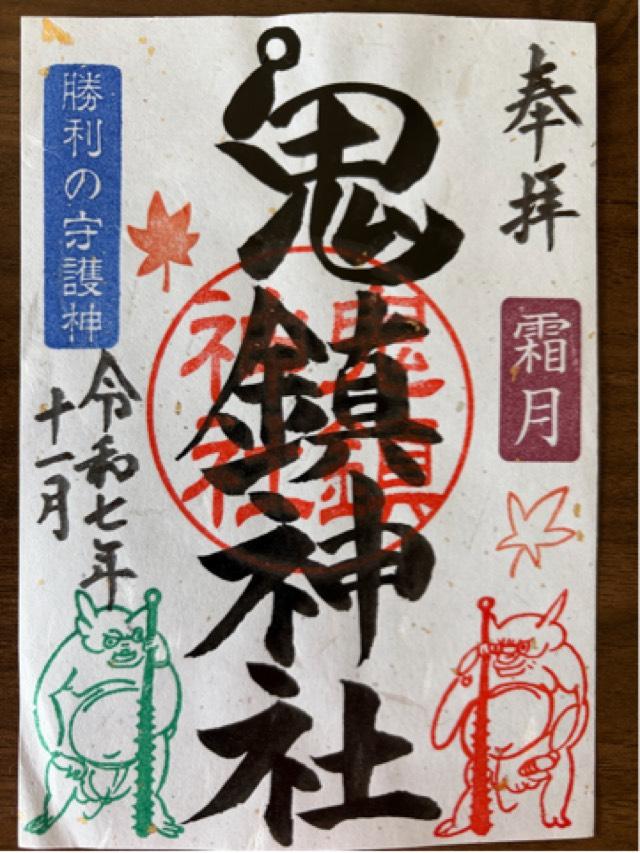 奉拝
霜月
鬼鎮神社
鬼鎮
神社
勝利の守護神
令和七年
十一月